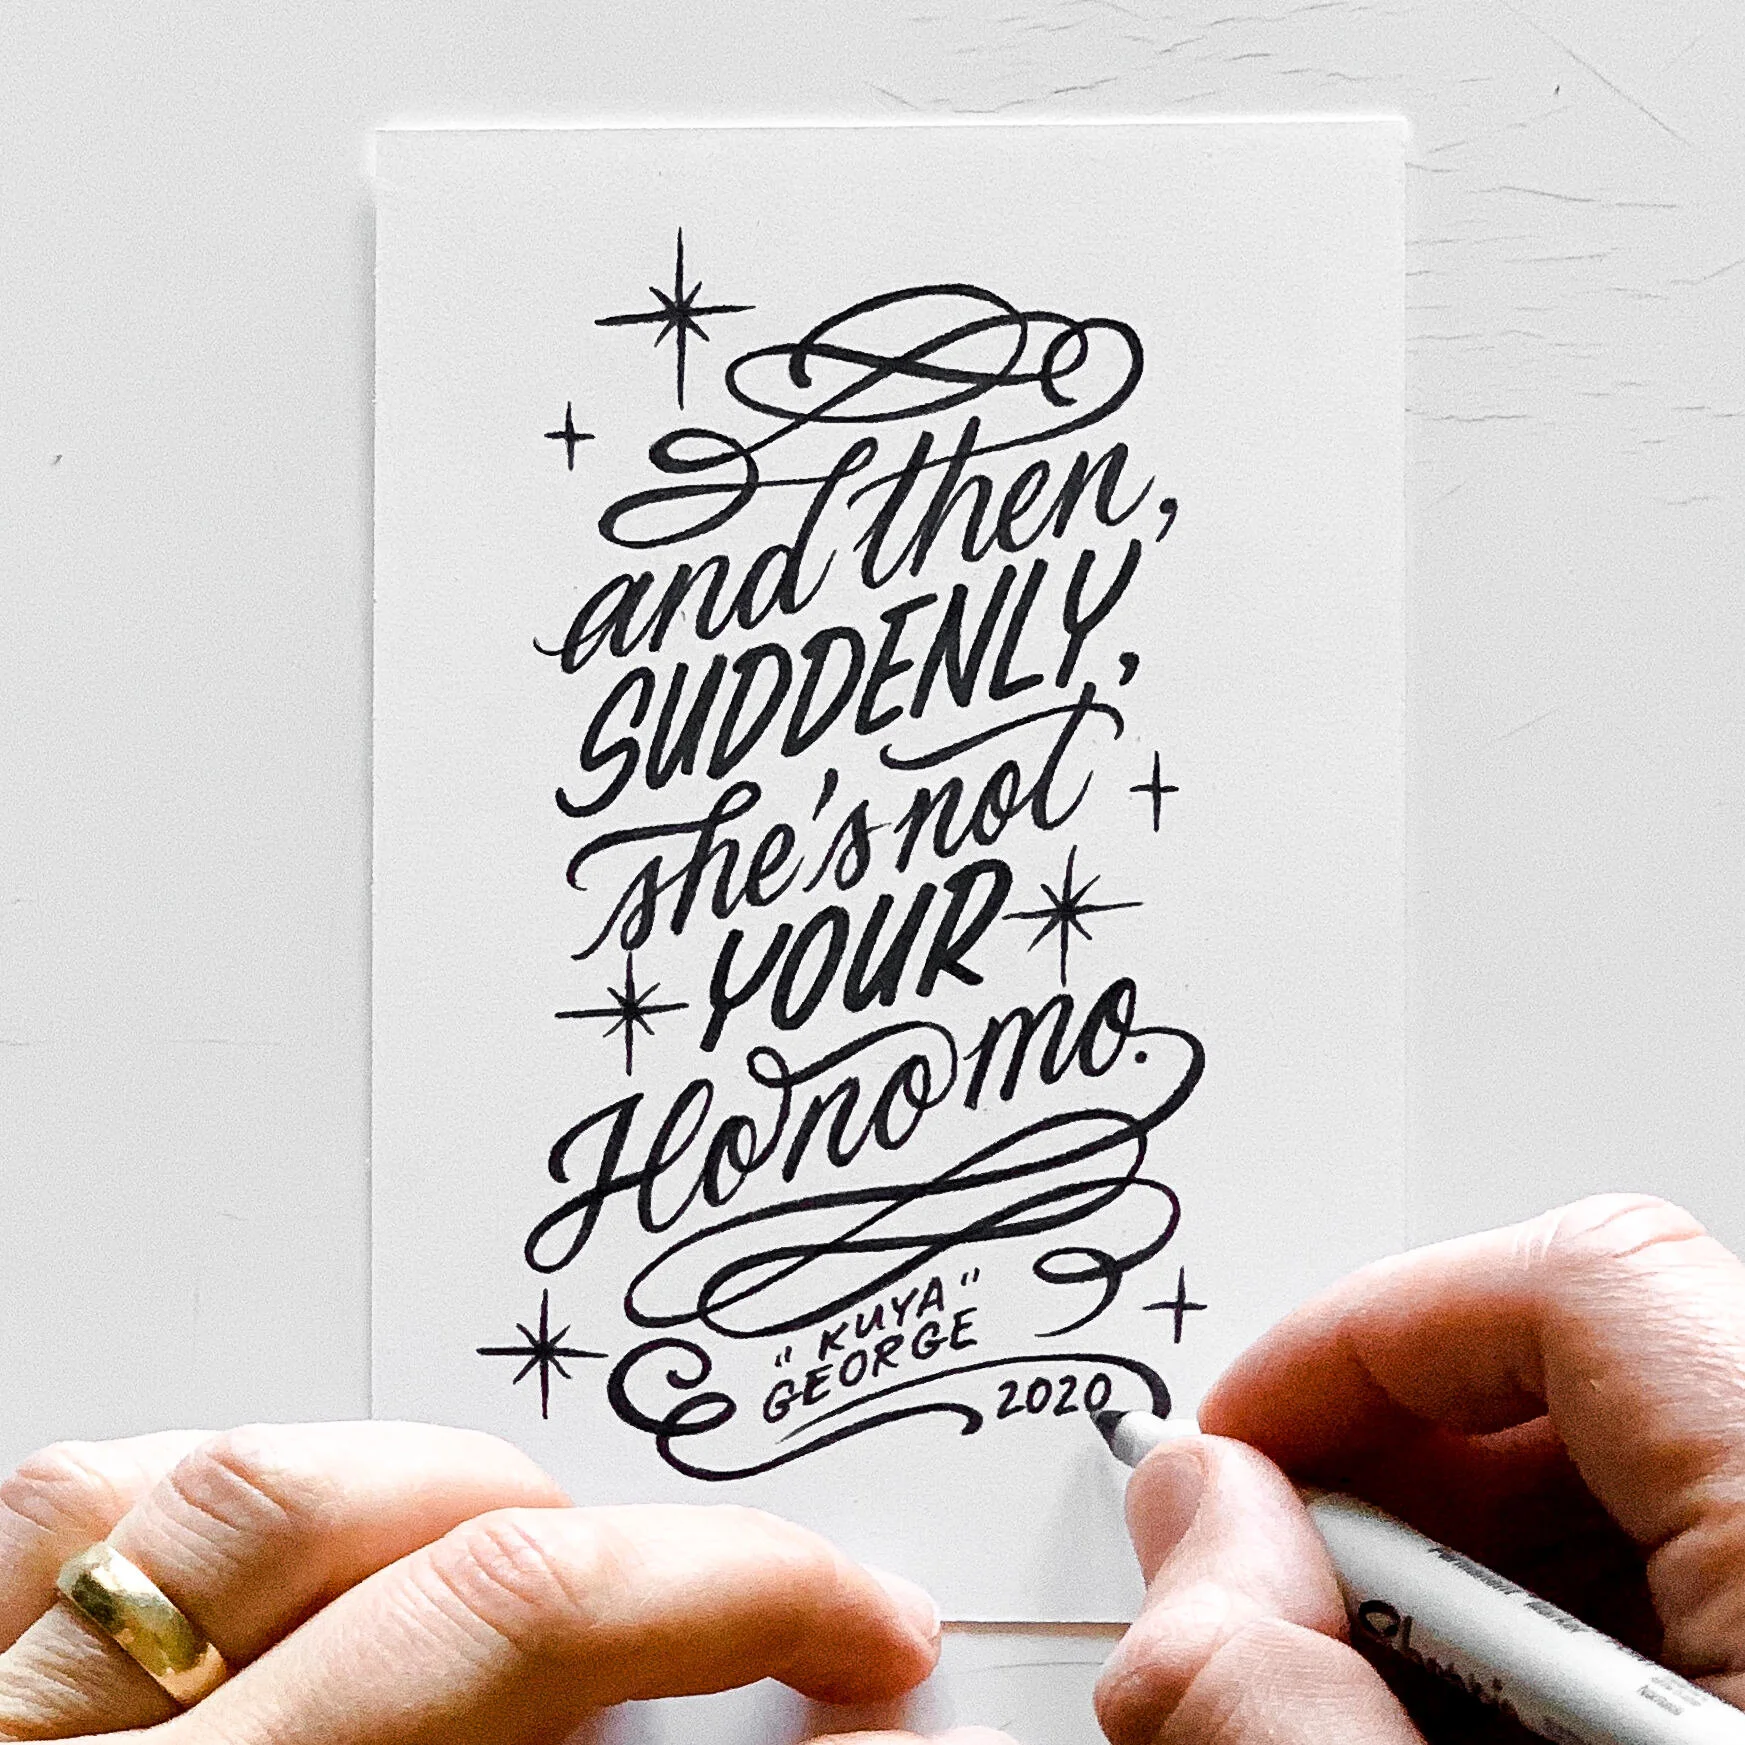 and then,
SUDDENLY,
she's not
YOUR
Honomo.
"KUYA"
GEORGE
2020